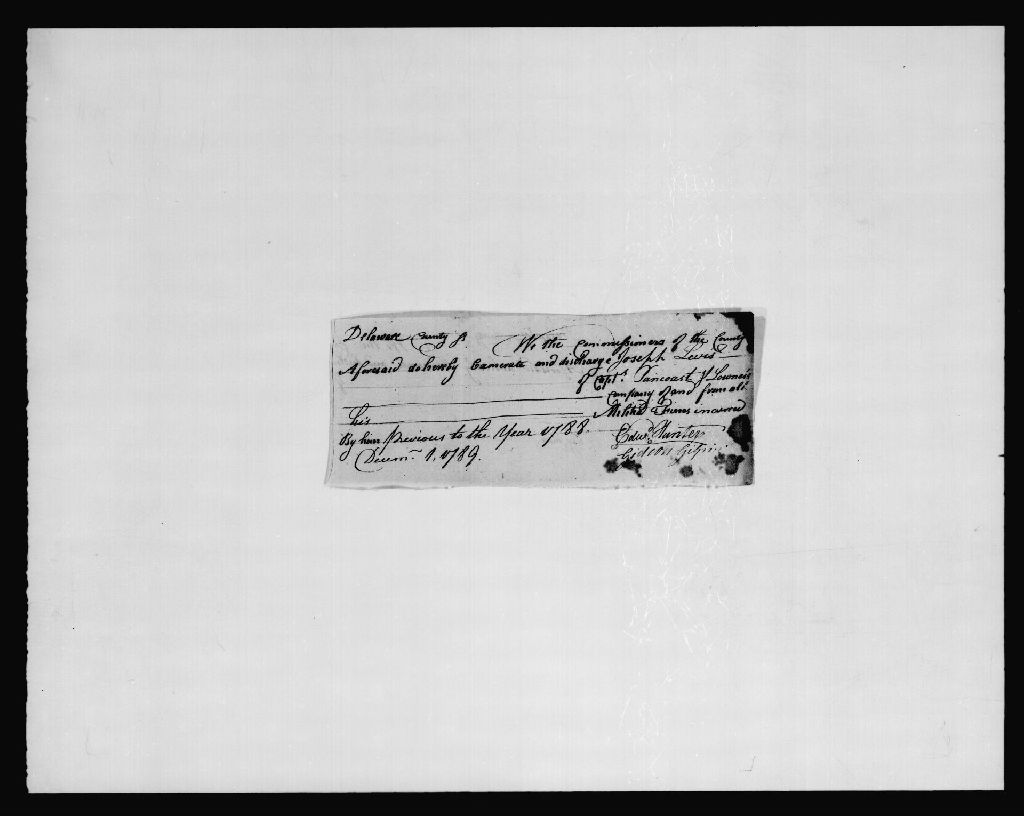 Delaware County ss We the Commissioners of the County
Aforesaid do hereby Exonerate and discharge Joseph Lewis
of Capt. Pancoast & Lownes's
Company of and from all
his Militia Fines incurred
By him previous to the Year 1788.
Decem. 1. 1789.
Edwd. Hunter
Gideon Gilpin